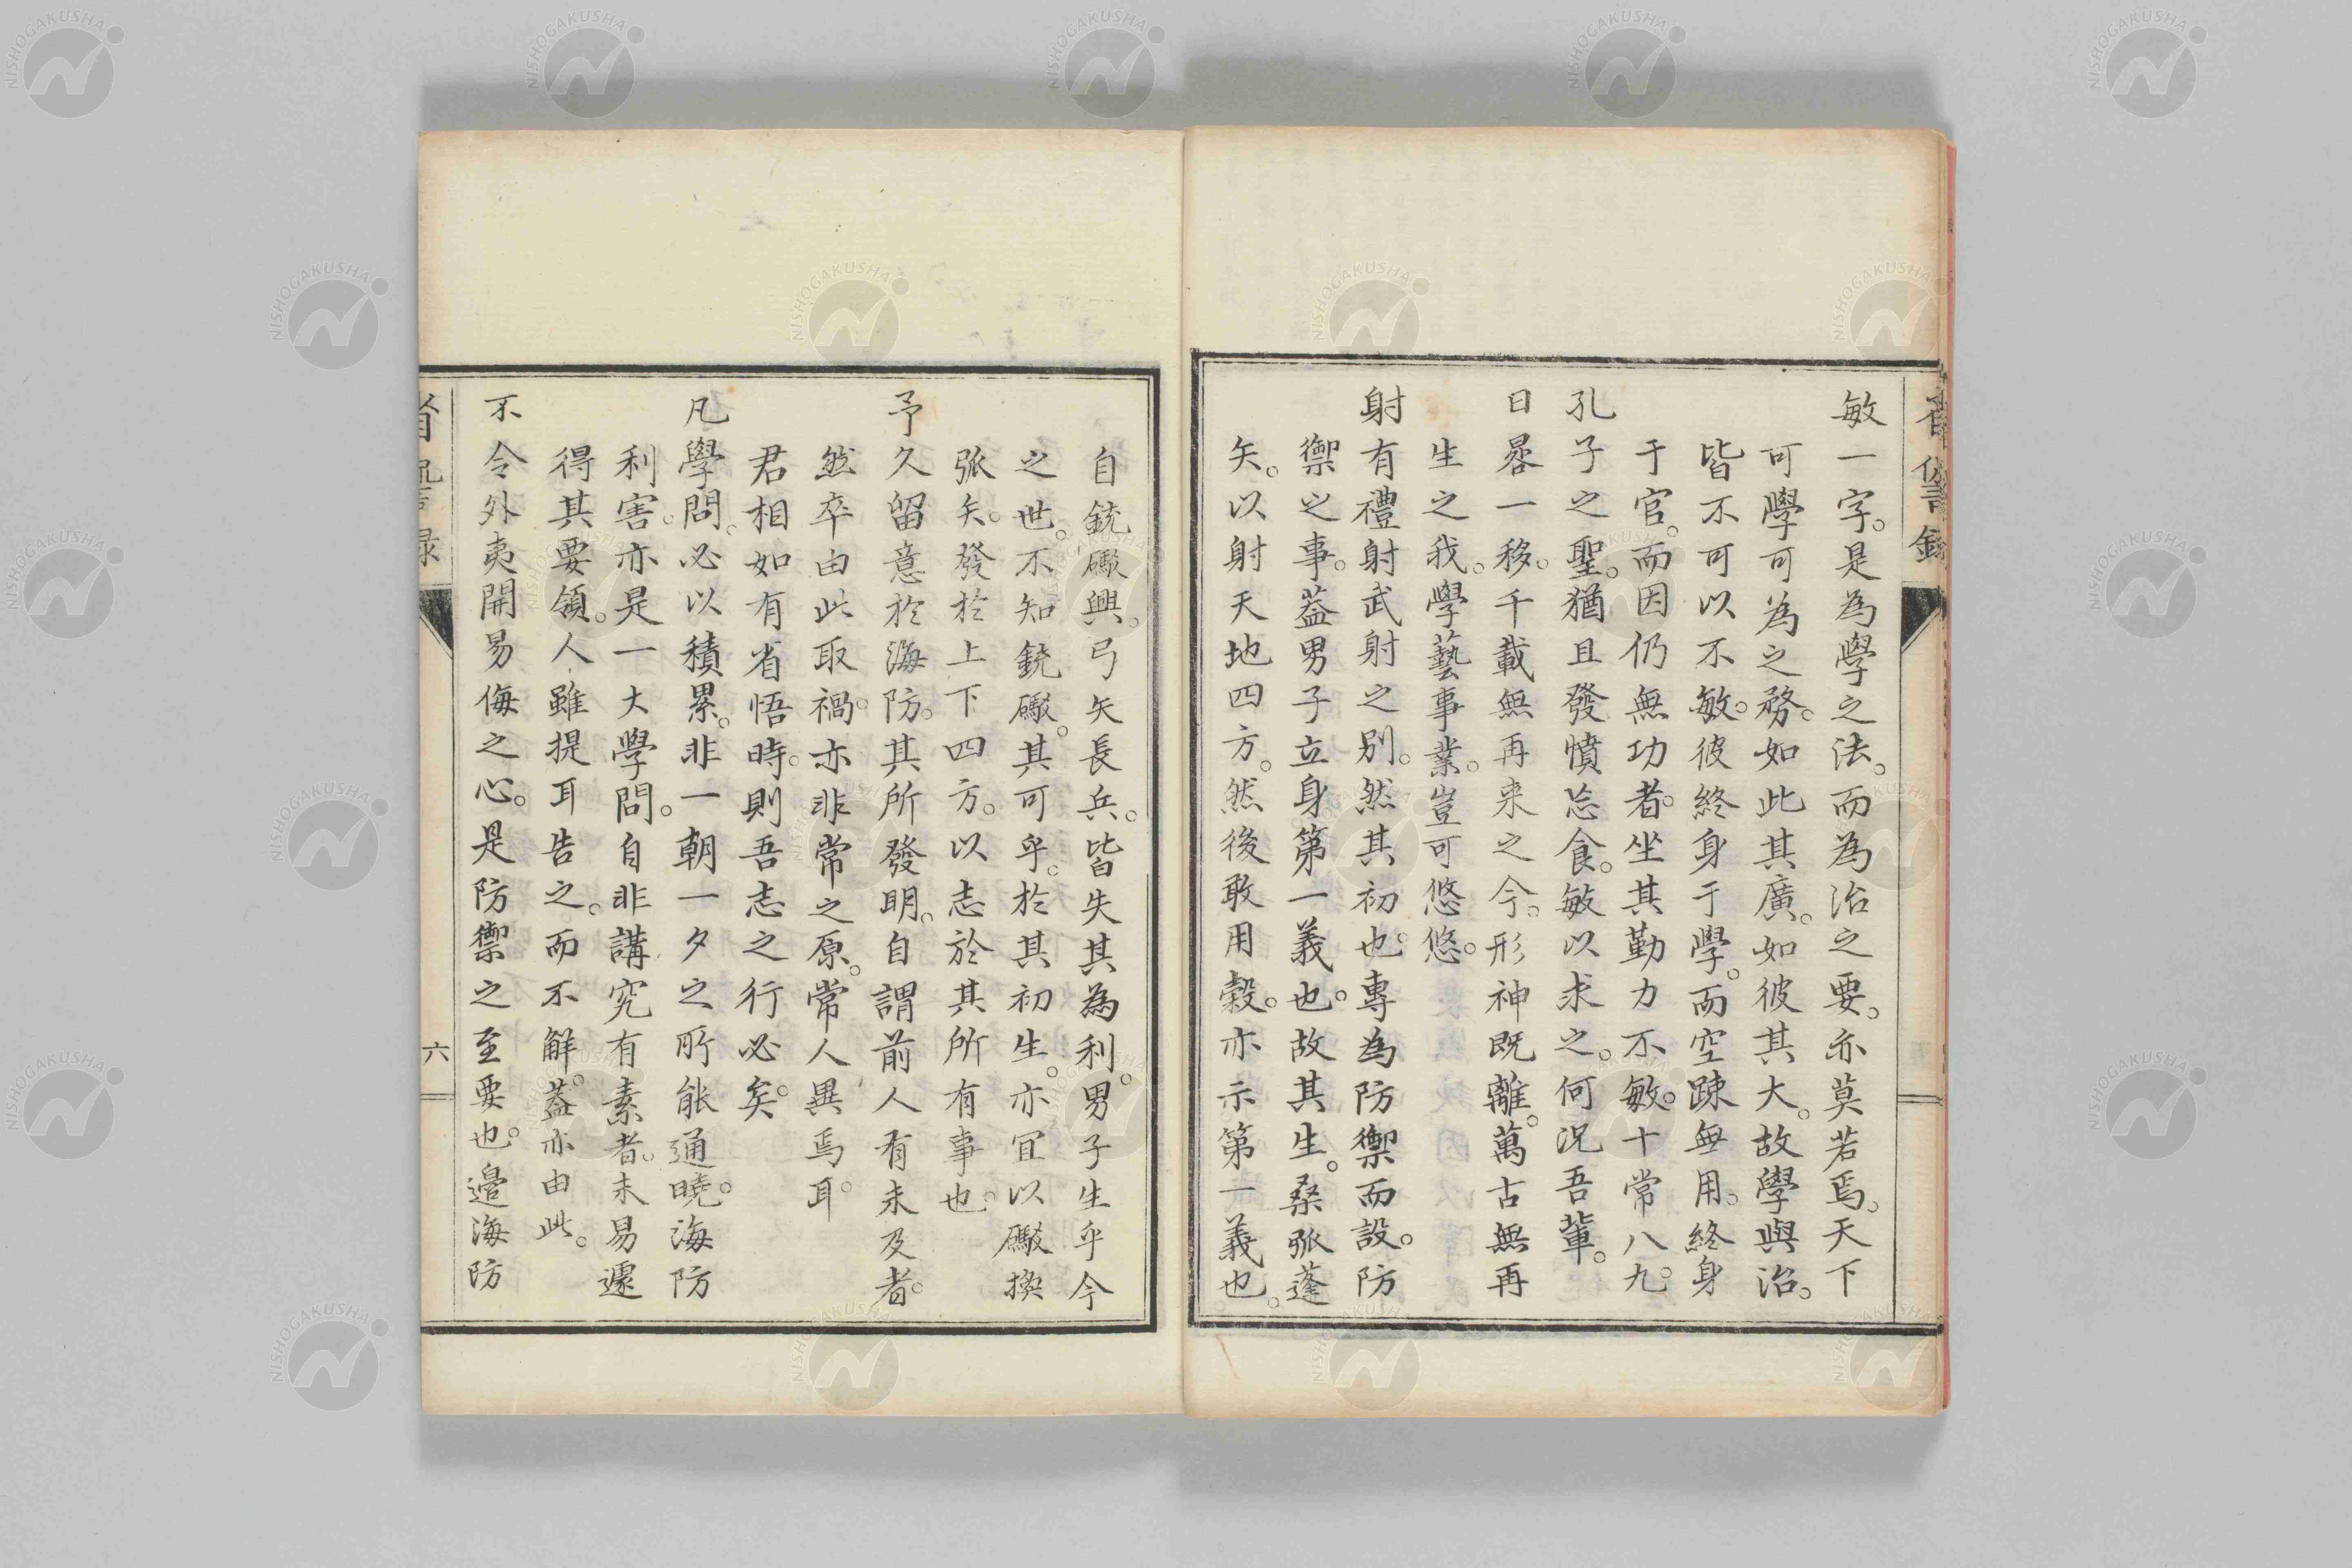 敏一字。是為學之法。而為治之要。亦莫若焉。天下
可學可為之務。如此其廣。如彼其大。故學與治。
皆不可以不敏。彼終身于學。而空踈無用。終身
于官。而因仍無功者。坐其勤力不敏。十常八九。
孔子之聖。猶且發憤忘食。敏以求之。何況吾輩。
日晷一移。千載無再来之今。形神既離。萬古無再
生之我。學藝事業。豈可悠悠。
射有禮射武射之别。然其初也。專為防禦而設。防
禦之事。葢男子立身第一義也。故其生。桑弧蓬
矢。以射天地四方。然後敢用穀。亦示第一義也。
自銃礮興。弓矢長兵。皆失其為利。男子生乎今
之世。不知銃礮。其可乎。於其初生。亦宜以礮換
弧矢。發於上下四方。以志於其所有事也。
予久留意於海防。其所發明。自謂前人有未及者。
然卒由此取禍。亦非常之原。常人異焉耳。
君相如有省悟時。則吾志之行必矣。
凡學問。必以積累。非一朝一夕之所能通曉。海防
利害。亦是一大學問。自非講究有素者。未易遽
得其要領。人雖提耳告之。而不解。葢亦由此。
不令外夷開易侮之心。是防禦之至要也。邉海防
省諐录
六
NISHOGAKUSHA